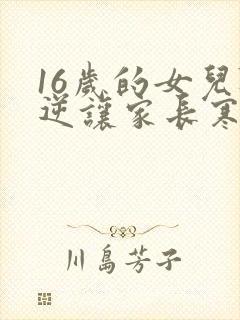 16歲的女兒
逆讓家長寒
川島芳子